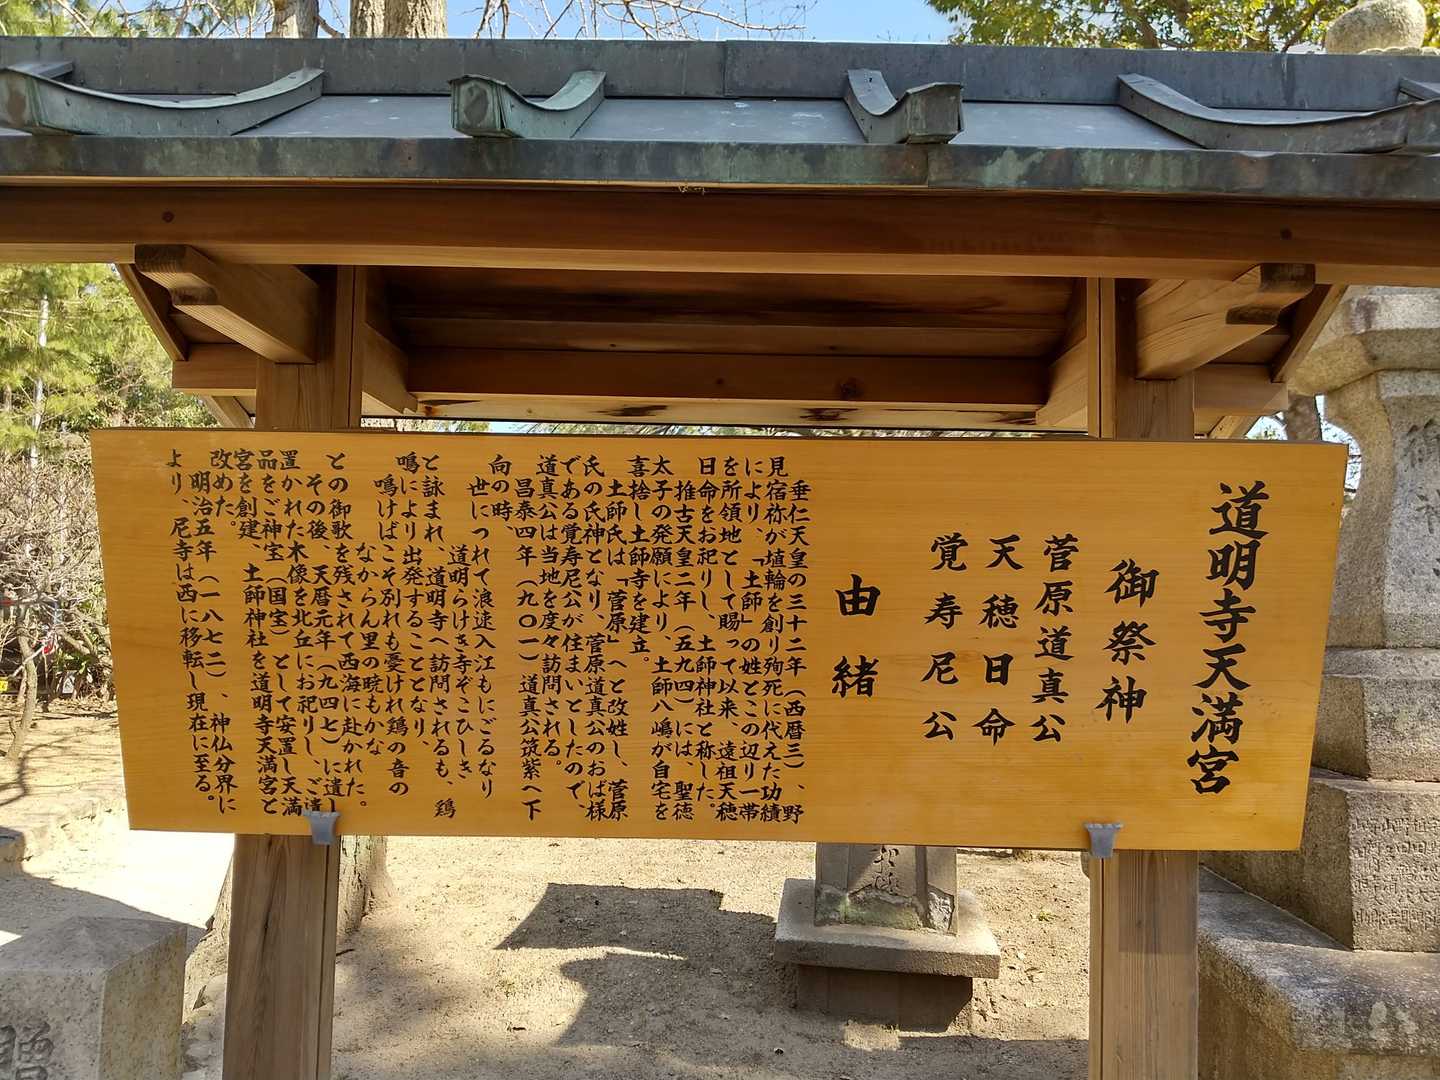 道明寺天満宮
御祭神
菅原道真公
天穂日命
覚寿尼公
由緒
垂仁天皇の三十二年（西暦三）、野
見宿祢が埴輪を創り殉死に代えた功績
により、「土師」の姓とこの辺り一帯
を所領地として賜って以来、遠祖天穂
日命をお祀りし、土師神社と称した。
推古天皇二年（五九四）には、聖徳
太子の発願により、土師八嶋が自宅を
喜捨し土師寺を建立。
土師氏は「菅原」へと改姓し、菅原
氏の氏神となり、菅原道真公のおば様
である覚寿尼公が住まいとしたので、
道真公は当地を度々訪問される。
昌泰四年（九〇一）道真公筑紫へ下
向の時、
世につれて浪速入江もにごるなり
道明らけき寺ぞこひしき
と詠まれ、道明寺へ訪問されるも、鶏
鳴により出発することとなり、
鳴けばこそ別れも憂けれ鶏の音の
なからん里の暁もがな
との御歌を残されて西海に赴かれた。
その後、天暦元年（九四七）に遺し
置かれた木像を此丘にお祀りし、ご遺
品をご神宝（国宝）として安置し天満
宮を創建、土師神社を道明寺天満宮と
改めた。
明治五年（一八七二）、神仏分界に
より、尼寺は西に移転し現在に至る。